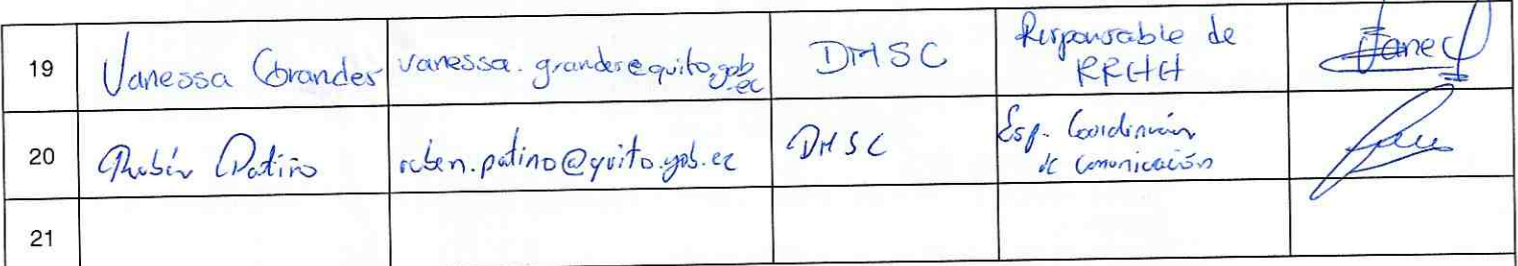 19 Vanessa Grandes vanessa.grandes@quito.gob.ec DMSC Responsable de RRHH
20 Rubén Patiño ruben.patino@quito.gob.ec DMSC Esp. Coordinación de Comunicación
21